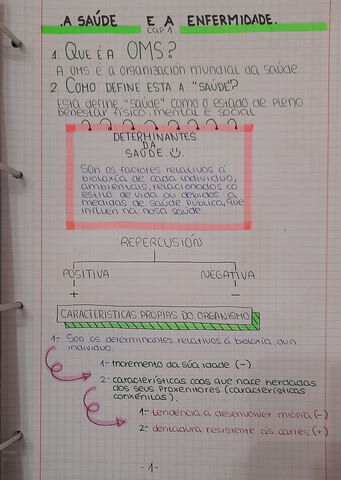 .A SAÚDE E A ENFERMIDADE.
CAP 1.
1. QUE É A OMS?
A OMS é a organización mundial da saúde
2. COMO DEFINE ESTA A "SAÚDE"?
Esta define "saúde" como o estado de pleno
benestar físico, mental e social
DETERMINANTES
DA
SAÚDE.
Son os factores relativos á
bioloxía de cada individuo,
ambientais, relacionados co
estilo de vida ou debidos a
medidas de saúde pública, que
influen na nosa saúde
REPERCUSIÓN
POSITIVA NEGATIVA
+ -
CARACTERISTICAS PROPIAS DO ORGANISMO
1- Son os determinantes relativos á bioloxía dun
individuo
1- Incremento da súa idade (-)
2- características coas que nace herdadas
dos seus proxenitores (características
conxénitas).
1- tendencia a desenvolver miopía (-)
2- dentadura resistente ás caries (+)
-1-